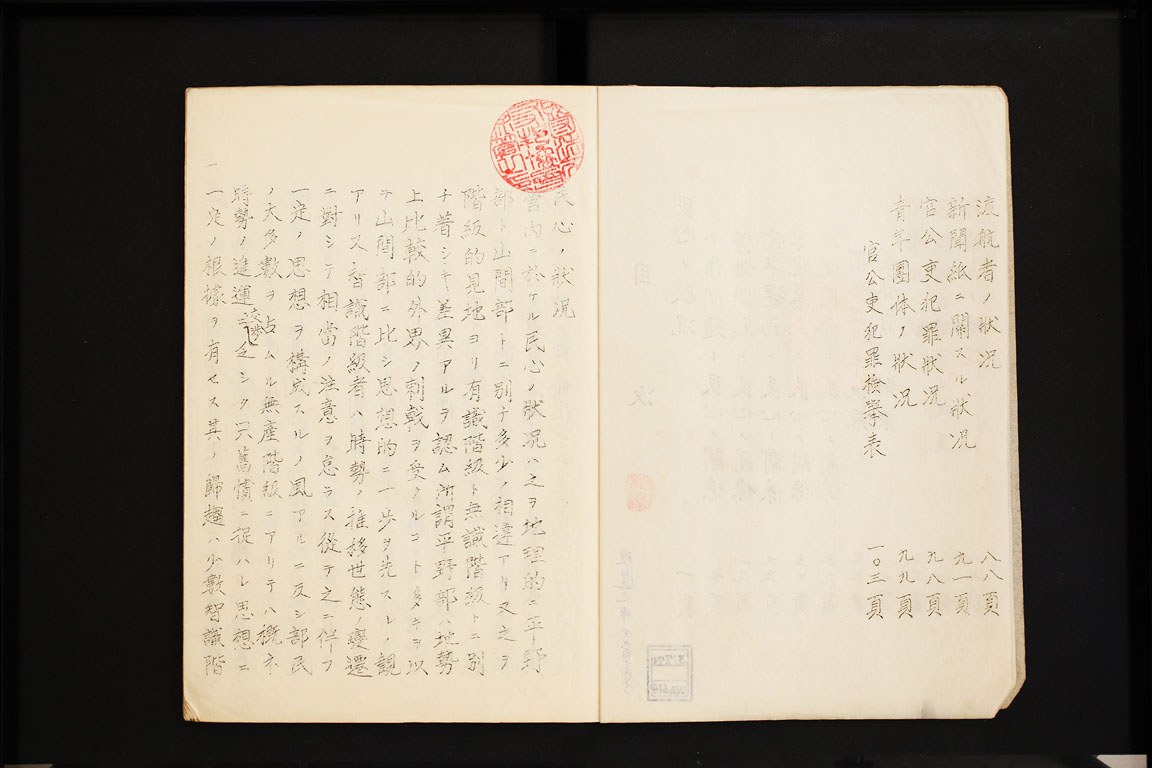 渡航者ノ狀况 八八頁
新聞紙ニ關スル狀况 九一頁
官公吏犯罪狀况 九八頁
青年團体ノ狀况 九九頁
官公吏犯罪檢擧表 一〇三頁
民心ノ狀况
管内ニ於ケル民心ノ狀况ハ之ヲ地理的ニ平野
部ト山間部トニ別チ多少ノ相違アリ又之ヲ
階級的見地ヨリ有識階級ト無識階級トニ別
チ著シキ差異アルヲ認ム所謂平野部ハ地勢
上比較的外界ノ刺戟ヲ受クルコト多キヲ以
テ山間部ニ比シ思想的ニ一歩ヲ先スルノ觀
アリ又智識階級者ハ時勢ノ推移世態ノ變遷
ニ對シテ相當ノ注意ヲ怠ラス從テ之ニ伴フ
一定ノ思想ヲ構成スルノ風アルニ反シ部民
ノ大多數ヲ占ムル無產階級ニアリテハ概ネ
時勢ノ進運ニ乏シク只舊慣ニ從ハレ思想ニ
一定ノ根據ヲ有セス其ノ歸趨ハ少數智識階
一